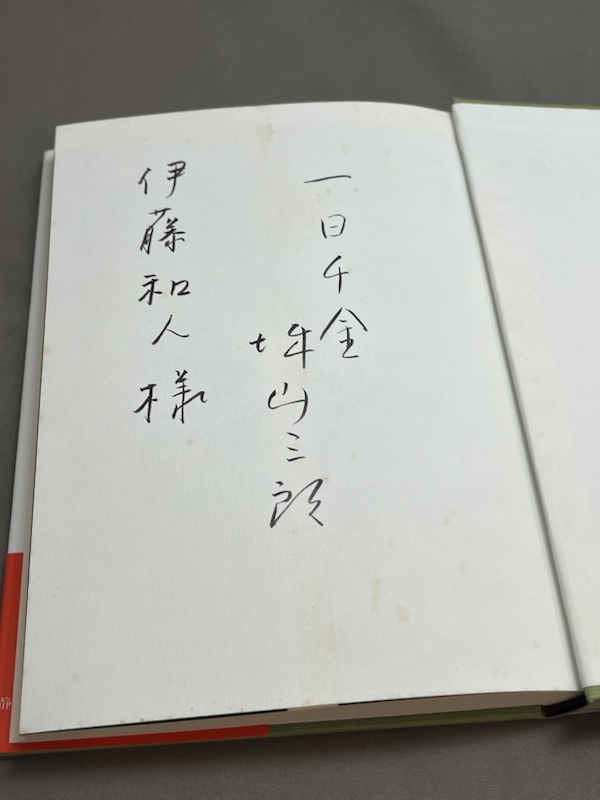 一日千金
城山三郎
伊藤和人様
静